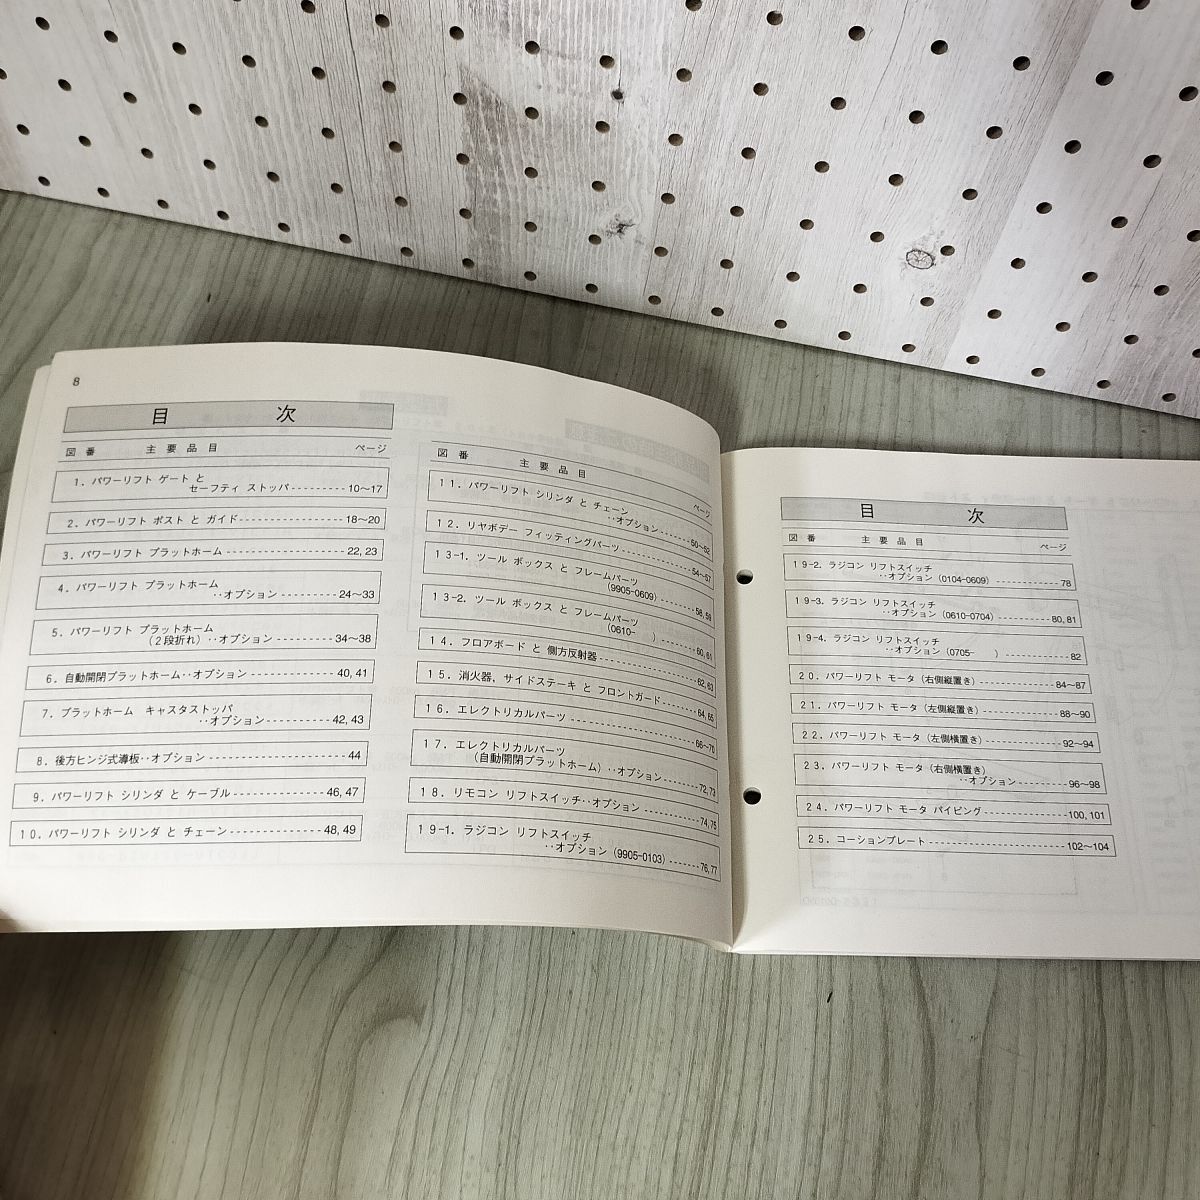 8
目 次
図 番 主 要 品 目 ページ
1．パワーリフト ゲート と
セーフティ ストッパ----------10～17
2．パワーリフト ポスト と ガイド------------------18～20
3．パワーリフト プラットホーム--------------------22, 23
4．パワーリフト プラットホーム
‥オプション----------24～33
5．パワーリフト プラットホーム
（２段折れ）‥オプション----------34～38
6．自動開閉プラットホーム‥オプション---------------40, 41
7．プラットホーム キャスタストッパ
‥オプション-----------42, 43
8．後方ヒンジ式導板‥オプション-----------------------44
9．パワーリフト シリンダ と ケーブル---------------46, 47
１０．パワーリフト シリンダ と チェーン---------------48, 49
図 番 主 要 品 目 ページ
１１．パワーリフト シリンダ と チェーン
‥オプション-------50～52
１２．リヤボデー フィッティングパーツ-----------54～57
１３-1．ツール ボックス と フレームパーツ
（9905-0609）-------58, 59
１３-2．ツール ボックス と フレームパーツ
（0610-　　）-------60, 61
１４．フロアボード と 側方反射器----------------62, 63
１５．消火器、サイドステーキ と フロントガード------64, 65
１６．エレクトリカルパーツ--------------------66～70
１７．エレクトリカルパーツ
（自動開閉プラットホーム）‥オプション-------72, 73
１８．リモコン リフトスイッチ‥オプション-----------74, 75
１９-1．ラジコン リフトスイッチ
‥オプション（9905-0103）-------76, 77
目 次
図 番 主 要 品 目 ページ
１９-2．ラジコン リフトスイッチ
‥オプション（0104-0609）-------------78
１９-3．ラジコン リフトスイッチ
‥オプション（0610-0704）-----------80, 81
１９-4．ラジコン リフトスイッチ
‥オプション（0705-　　）-------------82
２０．パワーリフト モータ（右側縦置き）---------------84～87
２１．パワーリフト モータ（左側縦置き）---------------88～90
２２．パワーリフト モータ（左側横置き）---------------92～94
２３．パワーリフト モータ（右側横置き）
‥オプション----------96～98
２４．パワーリフト モータ パイピング----------------100, 101
２５．コーションプレート--------------------------102～104